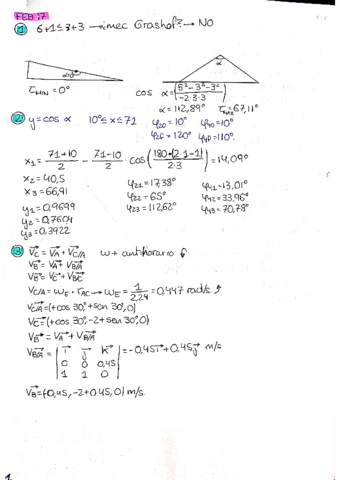 FEB 17
1 6+1≤3+3 → ¿mec Grashof? → NO
α=0°
α
τMIN=0°
cos α=(5²-3²-3²/-2·3·3)
α=112,89° τMAX=67,11°
2 y=cos α 10°≤x≤71 φ20=10° φ40=10°
φ2f=120° φ4f=110°
x1=71+10/2 - 71-10/2 cos(180(2·1-1)/2·3)=14,09°
x2=40,5
x3=66,91
φ21=17,38° φ41=13,01°
φ22=65° φ42=33,96°
φ23=112,62° φ43=70,78°
y1=0,9699
y2=0,7604
y3=0,3922
3 VC=VA+VC/A ω+ antihorario
VB=VA+VB/A
VB=VC+VB/C
VC/A=ωE·rAC→ωE=1/2,24=0,447 rad/s
VC/A=(+cos 30°,+sen 30°,0)
VC=(+cos 30°,-2+sen 30°,0)
VB=VA+VB/A
VB/A=| i j k |=-0,45i+0,45j m/s
0 0 0,45
1 1 0
VB=(-0,45,-2+0,45,0) m/s.